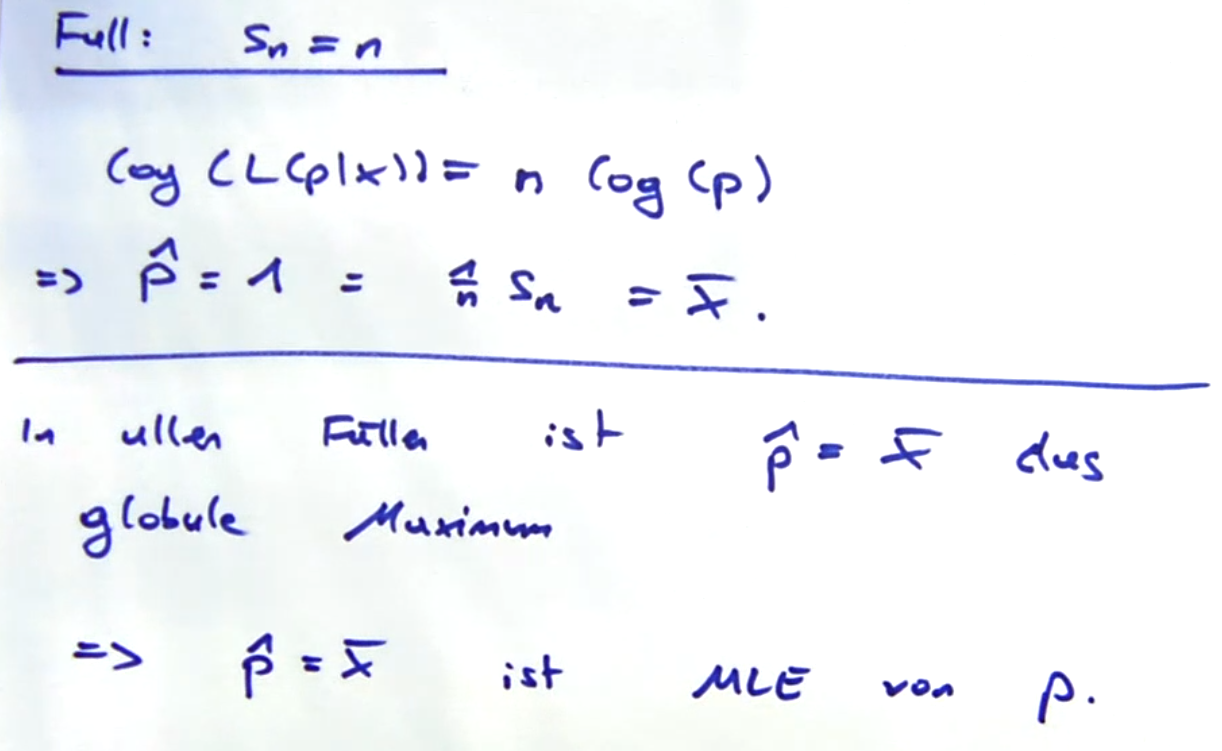 Fall: Sn = n
log (L(p|x)) = n log (p)
=> p̂ = 1 = 1/n Sn = x̄.
In allen Fällen ist p̂ = x̄ das
globale Maximum
=> p̂ = x̄ ist MLE von p.